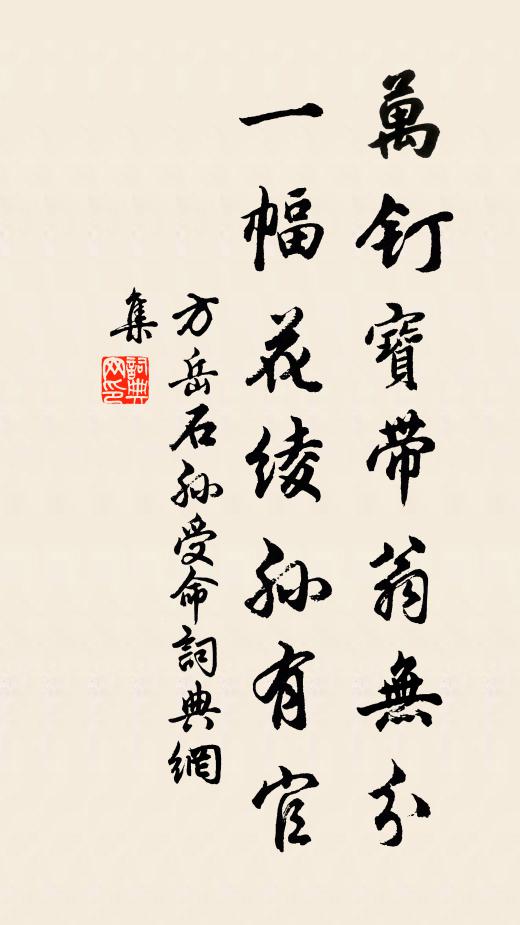 萬釘寶帶翁無分
一幅花綾孙有官
方岳石孙受命詞典網
集
詞典網印